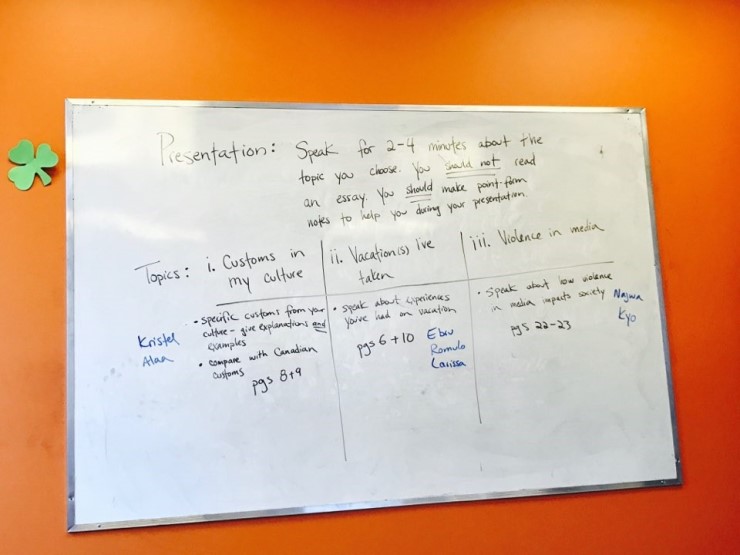 Presentation: Speak for 2-4 minutes about the
topic you choose. You should not read
an essay. You should make point-form
notes to help you during your presentation.
Topics: i. Customs in
my culture
• specific customs from your
culture - give explanations and
examples
• compare with Canadian
customs
pgs 8+9
Kristel
Alan
ii. Vacation(s) I've
taken
• speak about experiences
you've had on vacation
pgs 6 + 10
Ebru
Romulo
Larissa
iii. Violence in media
• speak about how violence
in media impacts society
pgs 22-23
Najwa
Kyo